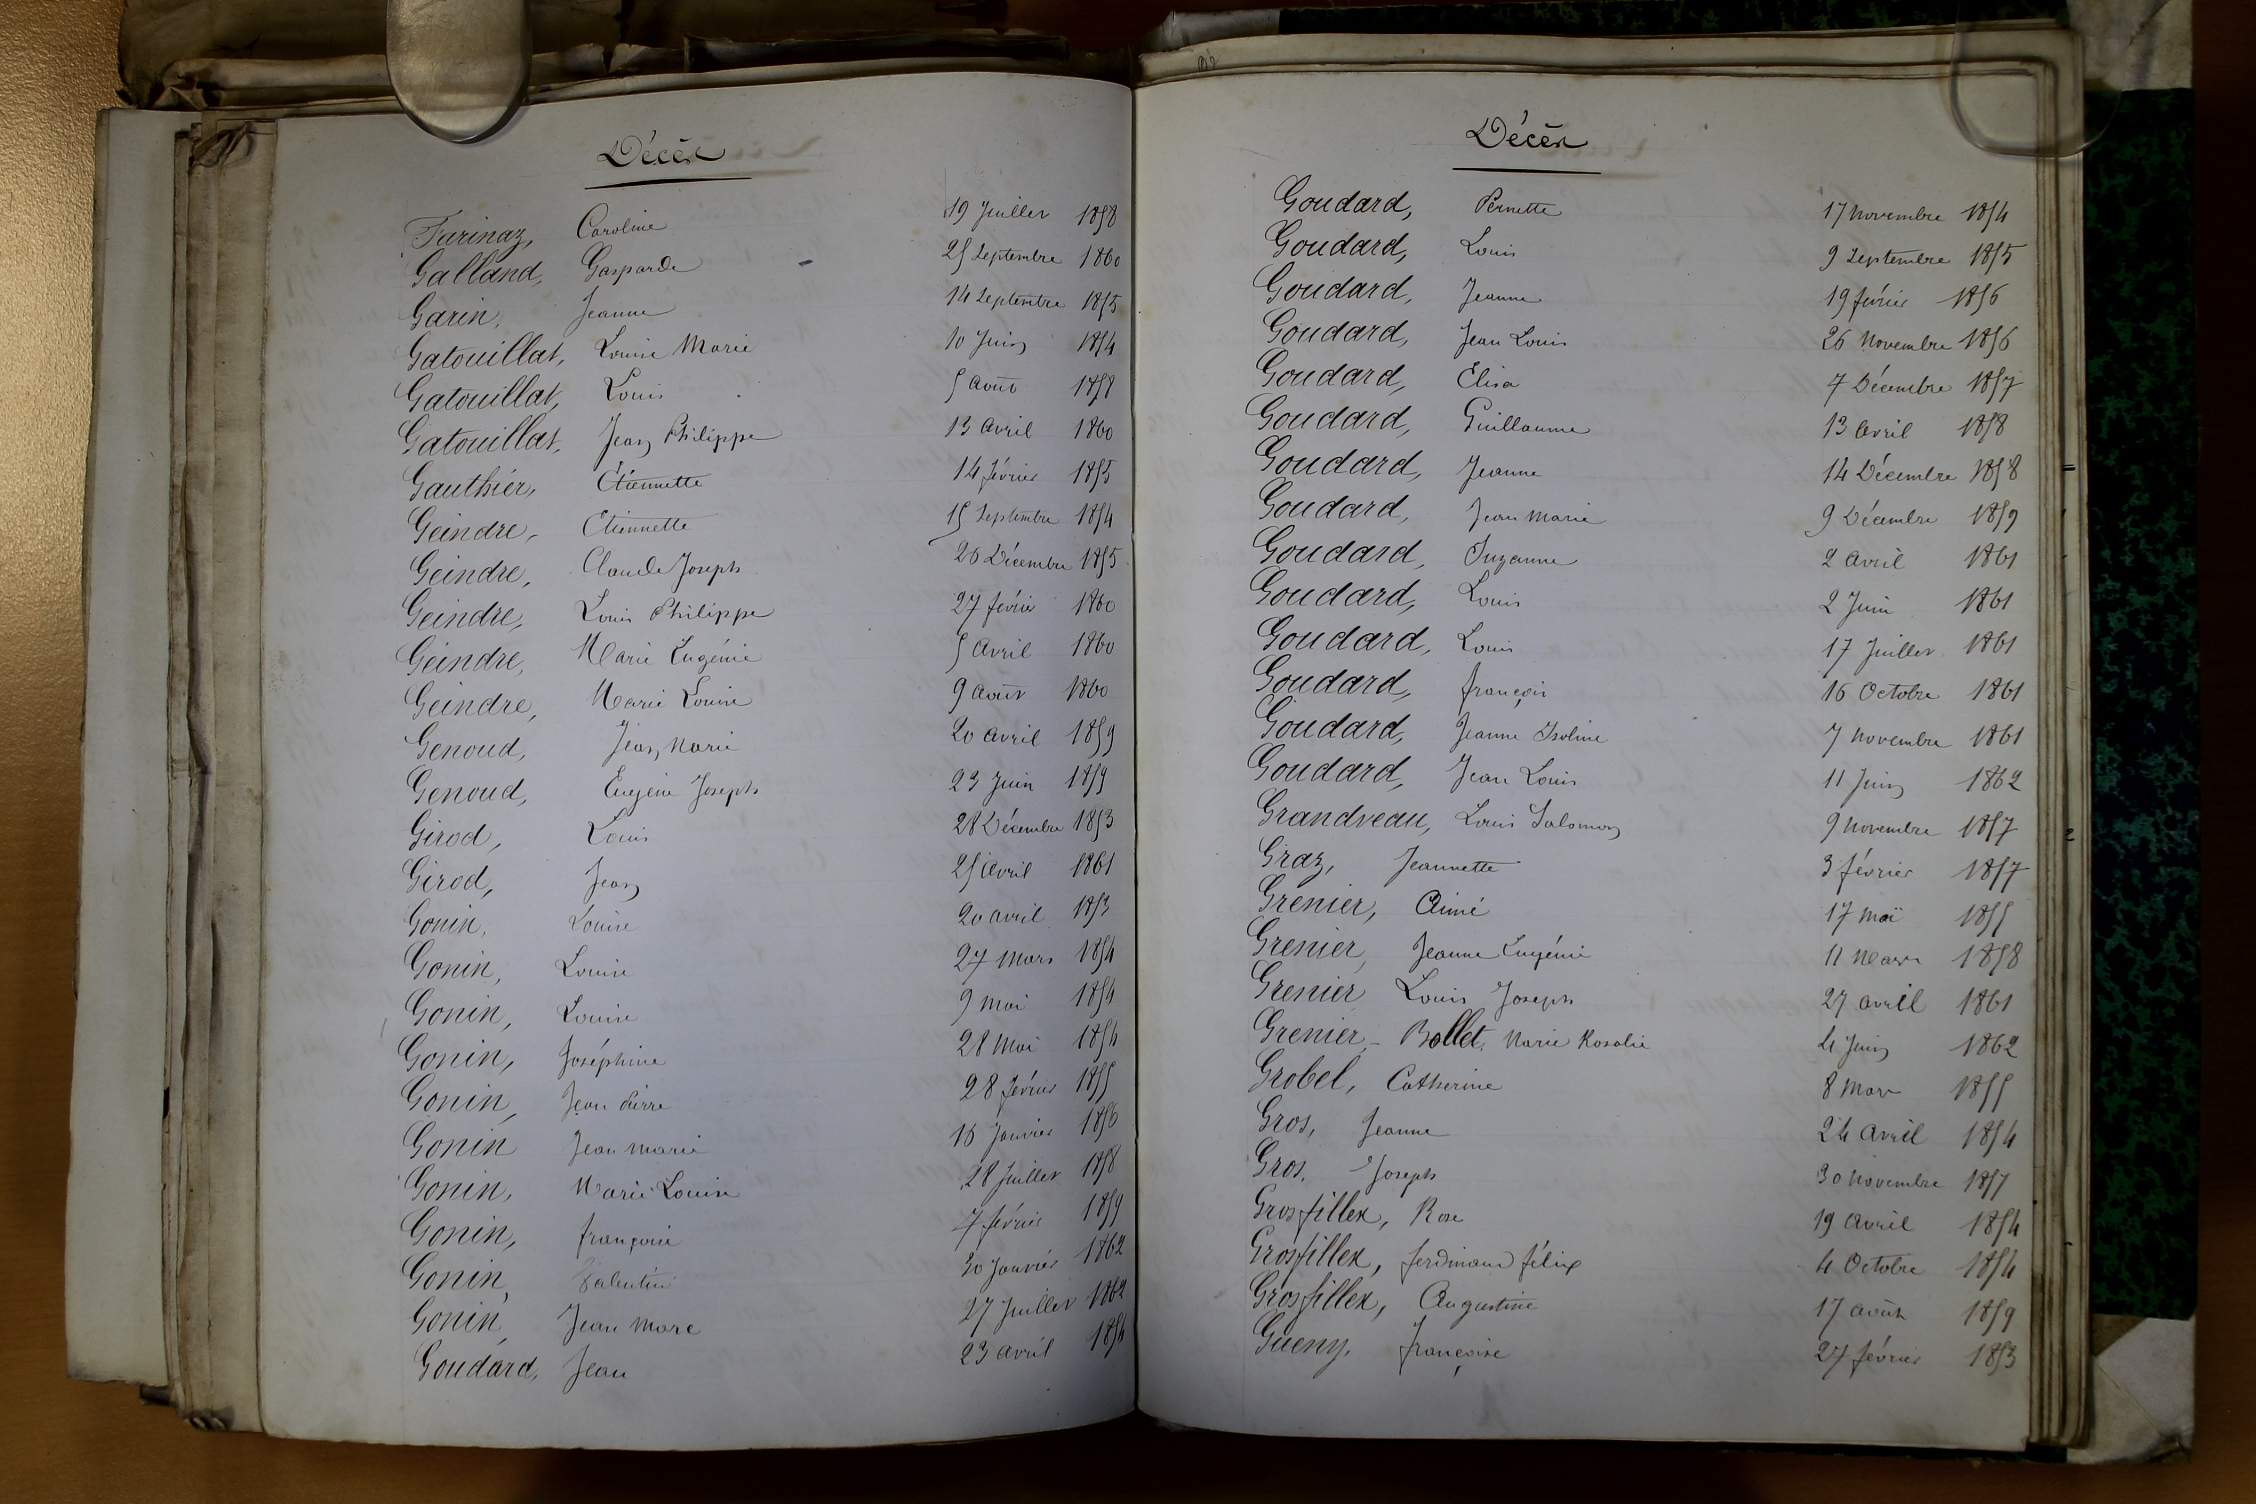 Décès
Furinaz, Caroline 19 Juillet 1858
Galland, Gasparde 25 Septembre 1860
Garin, Jeanne 14 Septembre 1855
Gatouillat, Louise Marie 10 Juin 1854
Gatouillat, Louis 5 août 1858
Gatouillat, Jean Philippe 13 avril 1860
Gauthier, Etiennette 14 février 1855
Geindre, Etiennette 15 Septembre 1854
Geindre, Claude Joseph 26 Décembre 1855
Geindre, Louis Philippe 27 février 1860
Geindre, Marie Eugénie 5 avril 1860
Geindre, Marie Louise 9 août 1860
Genoud, Jean Marie 20 avril 1859
Genoud, Eugène Joseph 23 Juin 1859
Girod, Louis 28 Décembre 1853
Girod, Jean 25 avril 1861
Gonin, Louise 20 avril 1853
Gonin, Louise 27 Mars 1854
Gonin, Louise 9 mai 1854
Gonin, Joséphine 28 Mai 1854
Gonin, Jean Pierre 28 février 1855
Gonin Jean Marie 16 Janvier 1856
Gonin, Marie Louise 28 Juillet 1858
Gonin, françoise 7 février 1859
Gonin, Valentin 30 Janvier 1862
Gonin, Jean Marc 27 Juillet 1862
Goudard, Jean 23 avril 1854
Décès
Goudard, Pernette 17 novembre 1854
Goudard, Louis 9 Septembre 1855
Goudard, Jeanne 19 février 1856
Goudard, Jean Louis 26 Novembre 1856
Goudard, Elisa 7 Décembre 1857
Goudard, Guillaume 13 avril 1858
Goudard, Jeanne 14 Décembre 1858
Goudard, Jean Marie 9 Décembre 1859
Goudard, Suzanne 2 avril 1861
Goudard, Louis 2 Juin 1861
Goudard, Louis 17 Juillet 1861
Goudard, françois 16 Octobre 1861
Goudard, Jeanne Isoline 7 novembre 1861
Goudard, Jean Louis 11 Juin 1862
Grandveau, Louis Salomon 9 novembre 1857
Graz, Jeannette 3 février 1857
Grenier, Aimé 17 maï 1855
Grenier, Jeanne Eugénie 11 Mars 1858
Grenier Louis Joseph 27 avril 1861
Grenier - Bollet, Marie Rosalie 4 Juin 1862
Grobel, Catherine 8 Mars 1855
Gros, Jeanne 24 avril 1854
Gros, Joseph 30 novembre 1857
Grosfillex, Rose 19 avril 1854
Grosfillex, ferdinand félix 4 Octobre 1854
Grosfillex, Augustine 17 août 1859
Gueny, françoise 27 février 1853